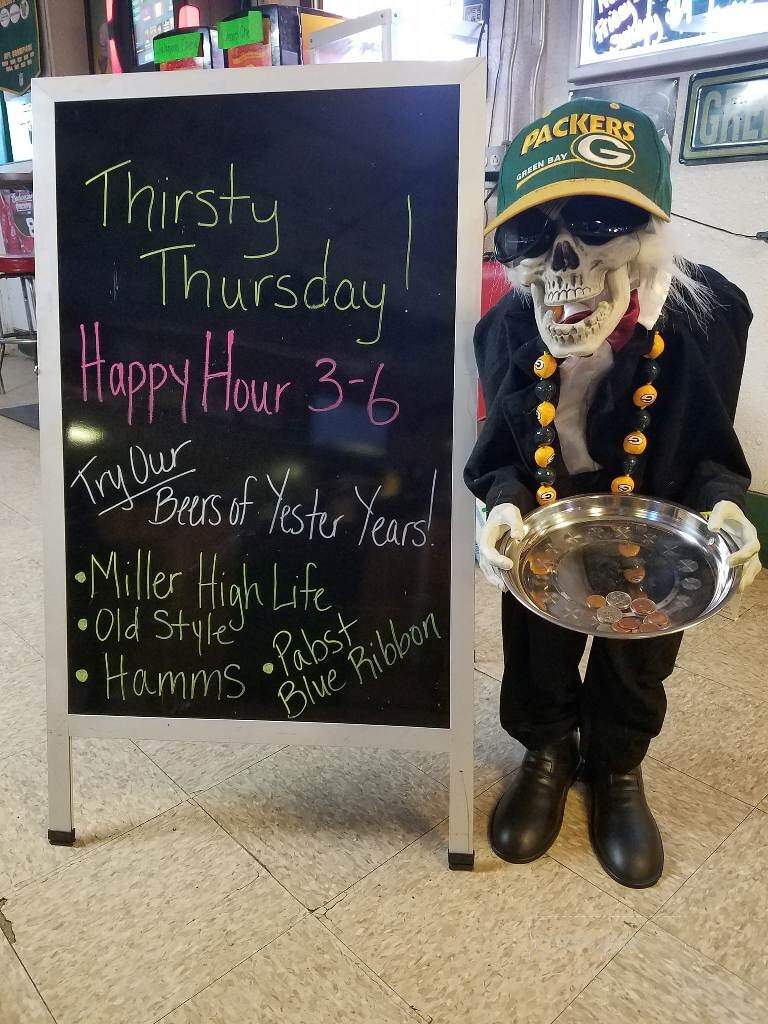 Thirsty
Thursday!
Happy Hour 3-6
Try Our
Beers of Yester Years!
• Miller High Life
• Old Style
• Hamms
• Pabst
Blue Ribbon
PACKERS
GREEN BAY
G
GRE